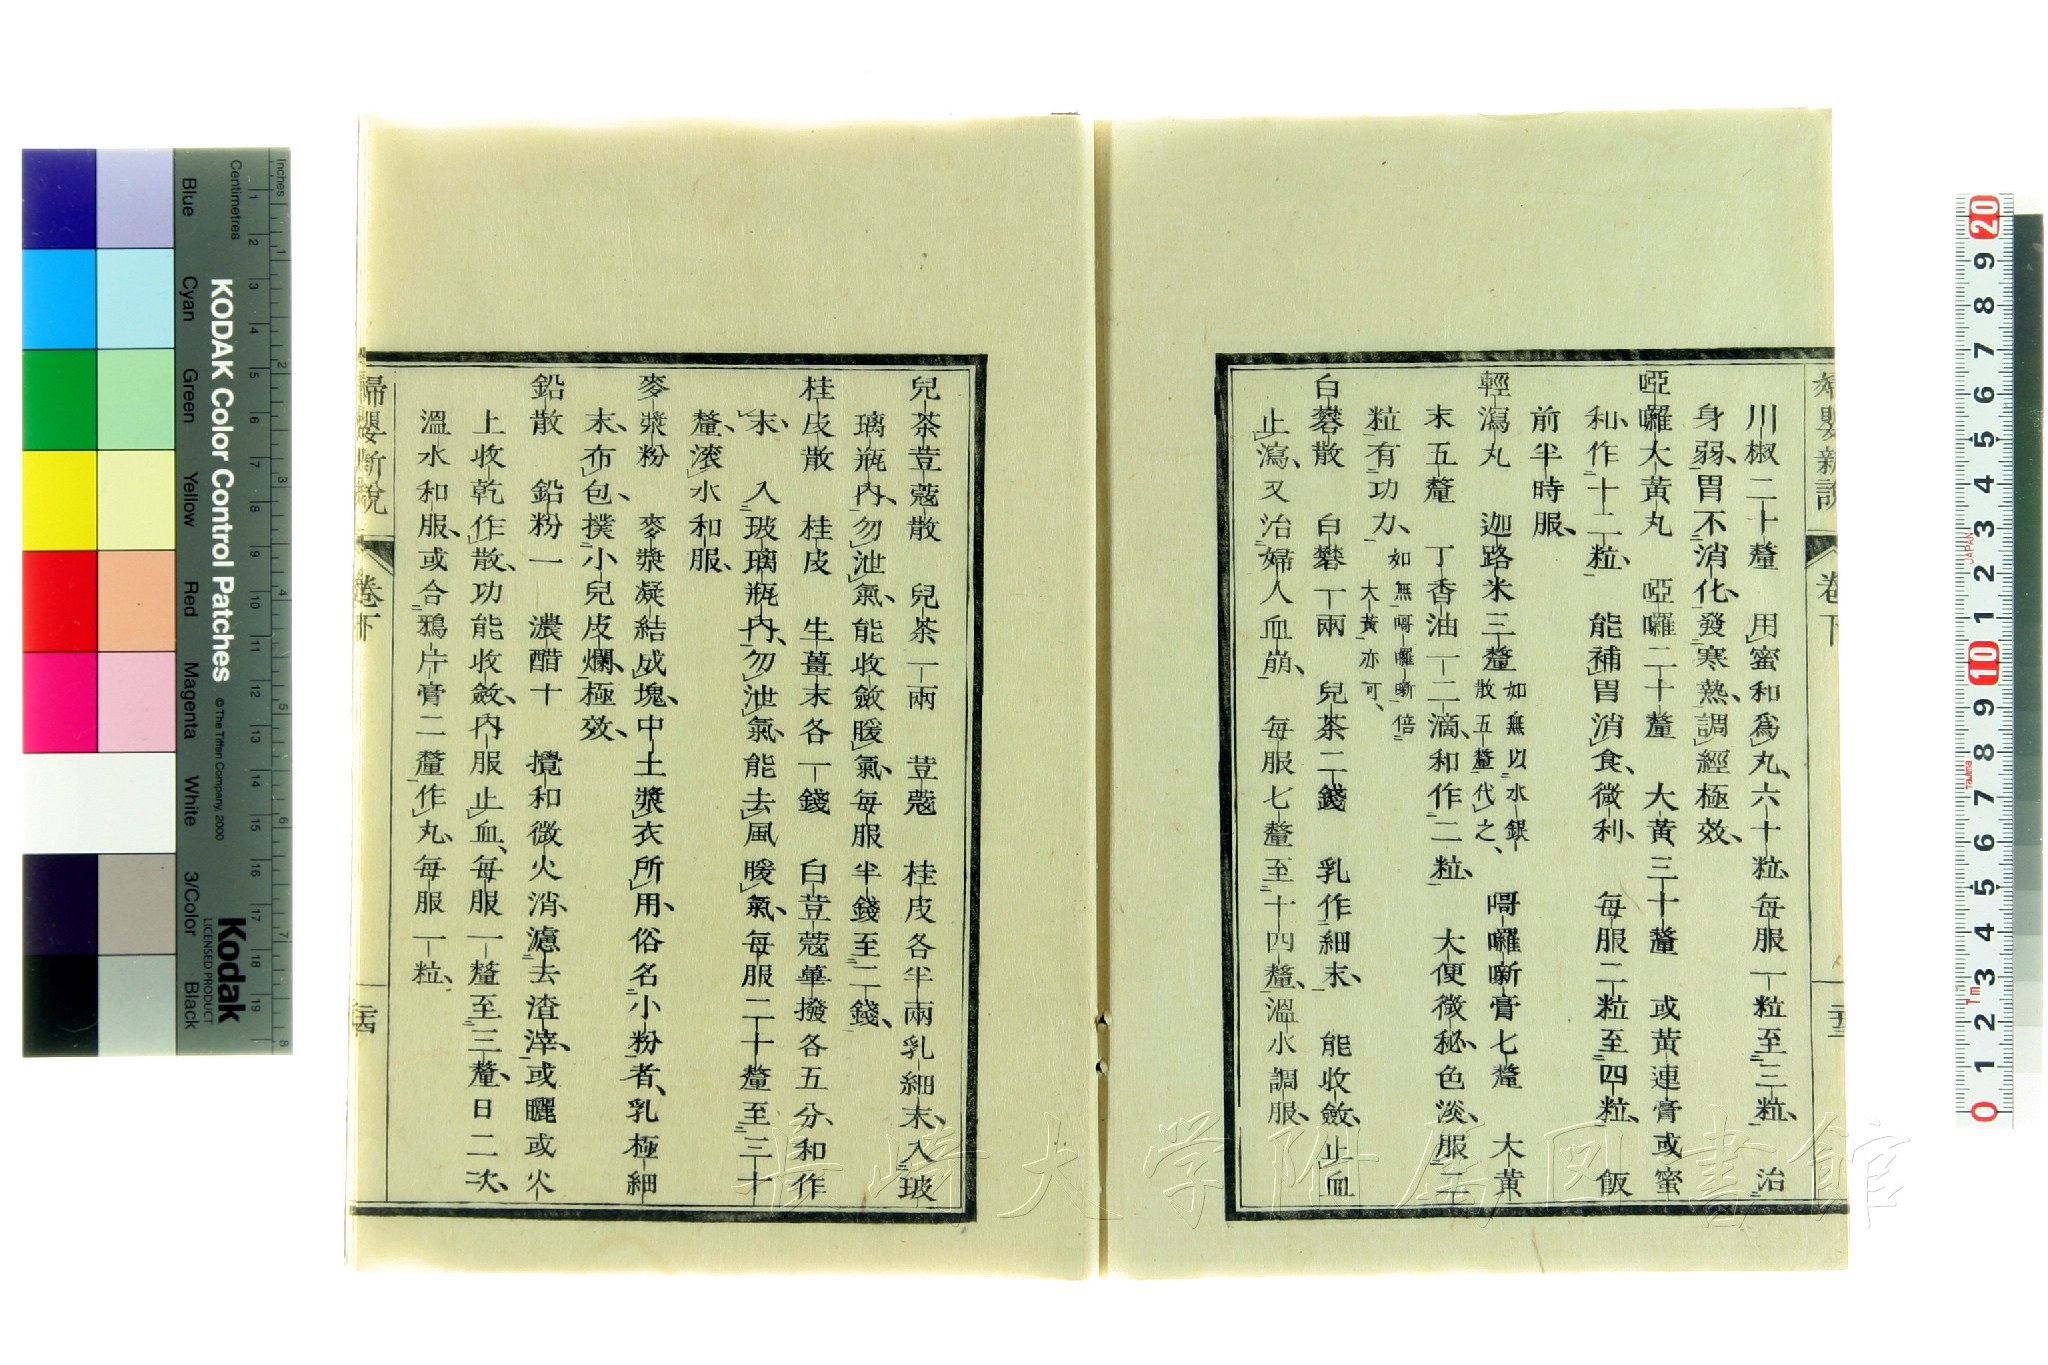 婦嬰新說 卷下 二十三
川椒二十釐 用蜜和爲丸、六十粒、每服一粒至三粒、 治
身弱、胃不消化、發寒熱、調經極效、
啞囉大黃丸 啞囉二十釐 大黃三十釐 或黃連膏或蜜
和、作十二粒、 能補胃消食、微利、 每服二粒至四粒、 飯
前半時服、
輕瀉丸 迦路米三釐 如無以水銀散五釐代之、 哥囉噺膏七釐 大黃
末五釐 丁香油一二滴、和作二粒、 大便微秘、色淡、服二
粒有功力、 如無哥囉噺倍大黃亦可、
白礬散 白礬一兩 兒茶二錢 乳作細末、 能收斂、止血
止瀉、又治婦人血崩、 每服七釐至十四釐、溫水調服、
兒茶荳蔻散 兒茶一兩 荳蔻 桂皮各半兩乳細末、入玻
璃瓶內、勿泄氣、能收斂暖氣、每服半錢至二錢、
桂皮散 桂皮 生薑末各一錢 白荳蔻蓽撥各五分、和作
末、 入玻璃瓶內、勿泄氣、能去風暖氣、每服二十釐至三十
釐、滾水和服、
麥漿粉 麥漿凝結成塊、中土漿衣所用、俗名小粉者、乳極細
末、布包、撲小兒皮爛、極效、
鉛散 鉛粉一 濃醋十 攪和微火消、濾去渣滓、或曬或火
上收乾作散、功能收斂、內服止血、每服一釐至三釐、日二次、
溫水和服、或合鴉片膏二釐作丸、每服一粒、
婦嬰新說 卷下 二十四
KODAK Color Control Patches © The Tiffen Company, 2000
Kodak LICENSED PRODUCT
Inches 1 2 3 4 5 6 7 8
Centimetres 1 2 3 4 5 6 7 8 9 10 11 12 13 14 15 16 17 18 19
Blue Cyan Green Yellow Red Magenta White 3/Color Black
20 9 8 7 6 5 4 3 2 1 10 9 8 7 6 5 4 3 2 1 0
JAPAN
Tajima
Tm
長崎大学附属図書館